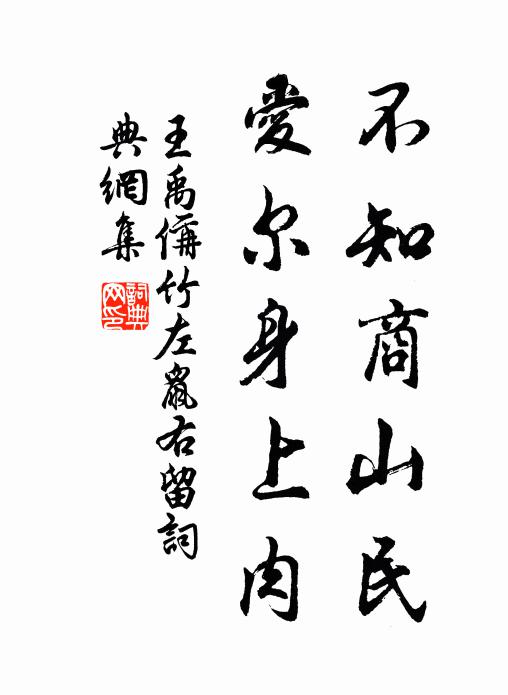 不知商山民
愛尔身上肉
王禹偁竹左鼠右留詞
典網集
詞典
网印